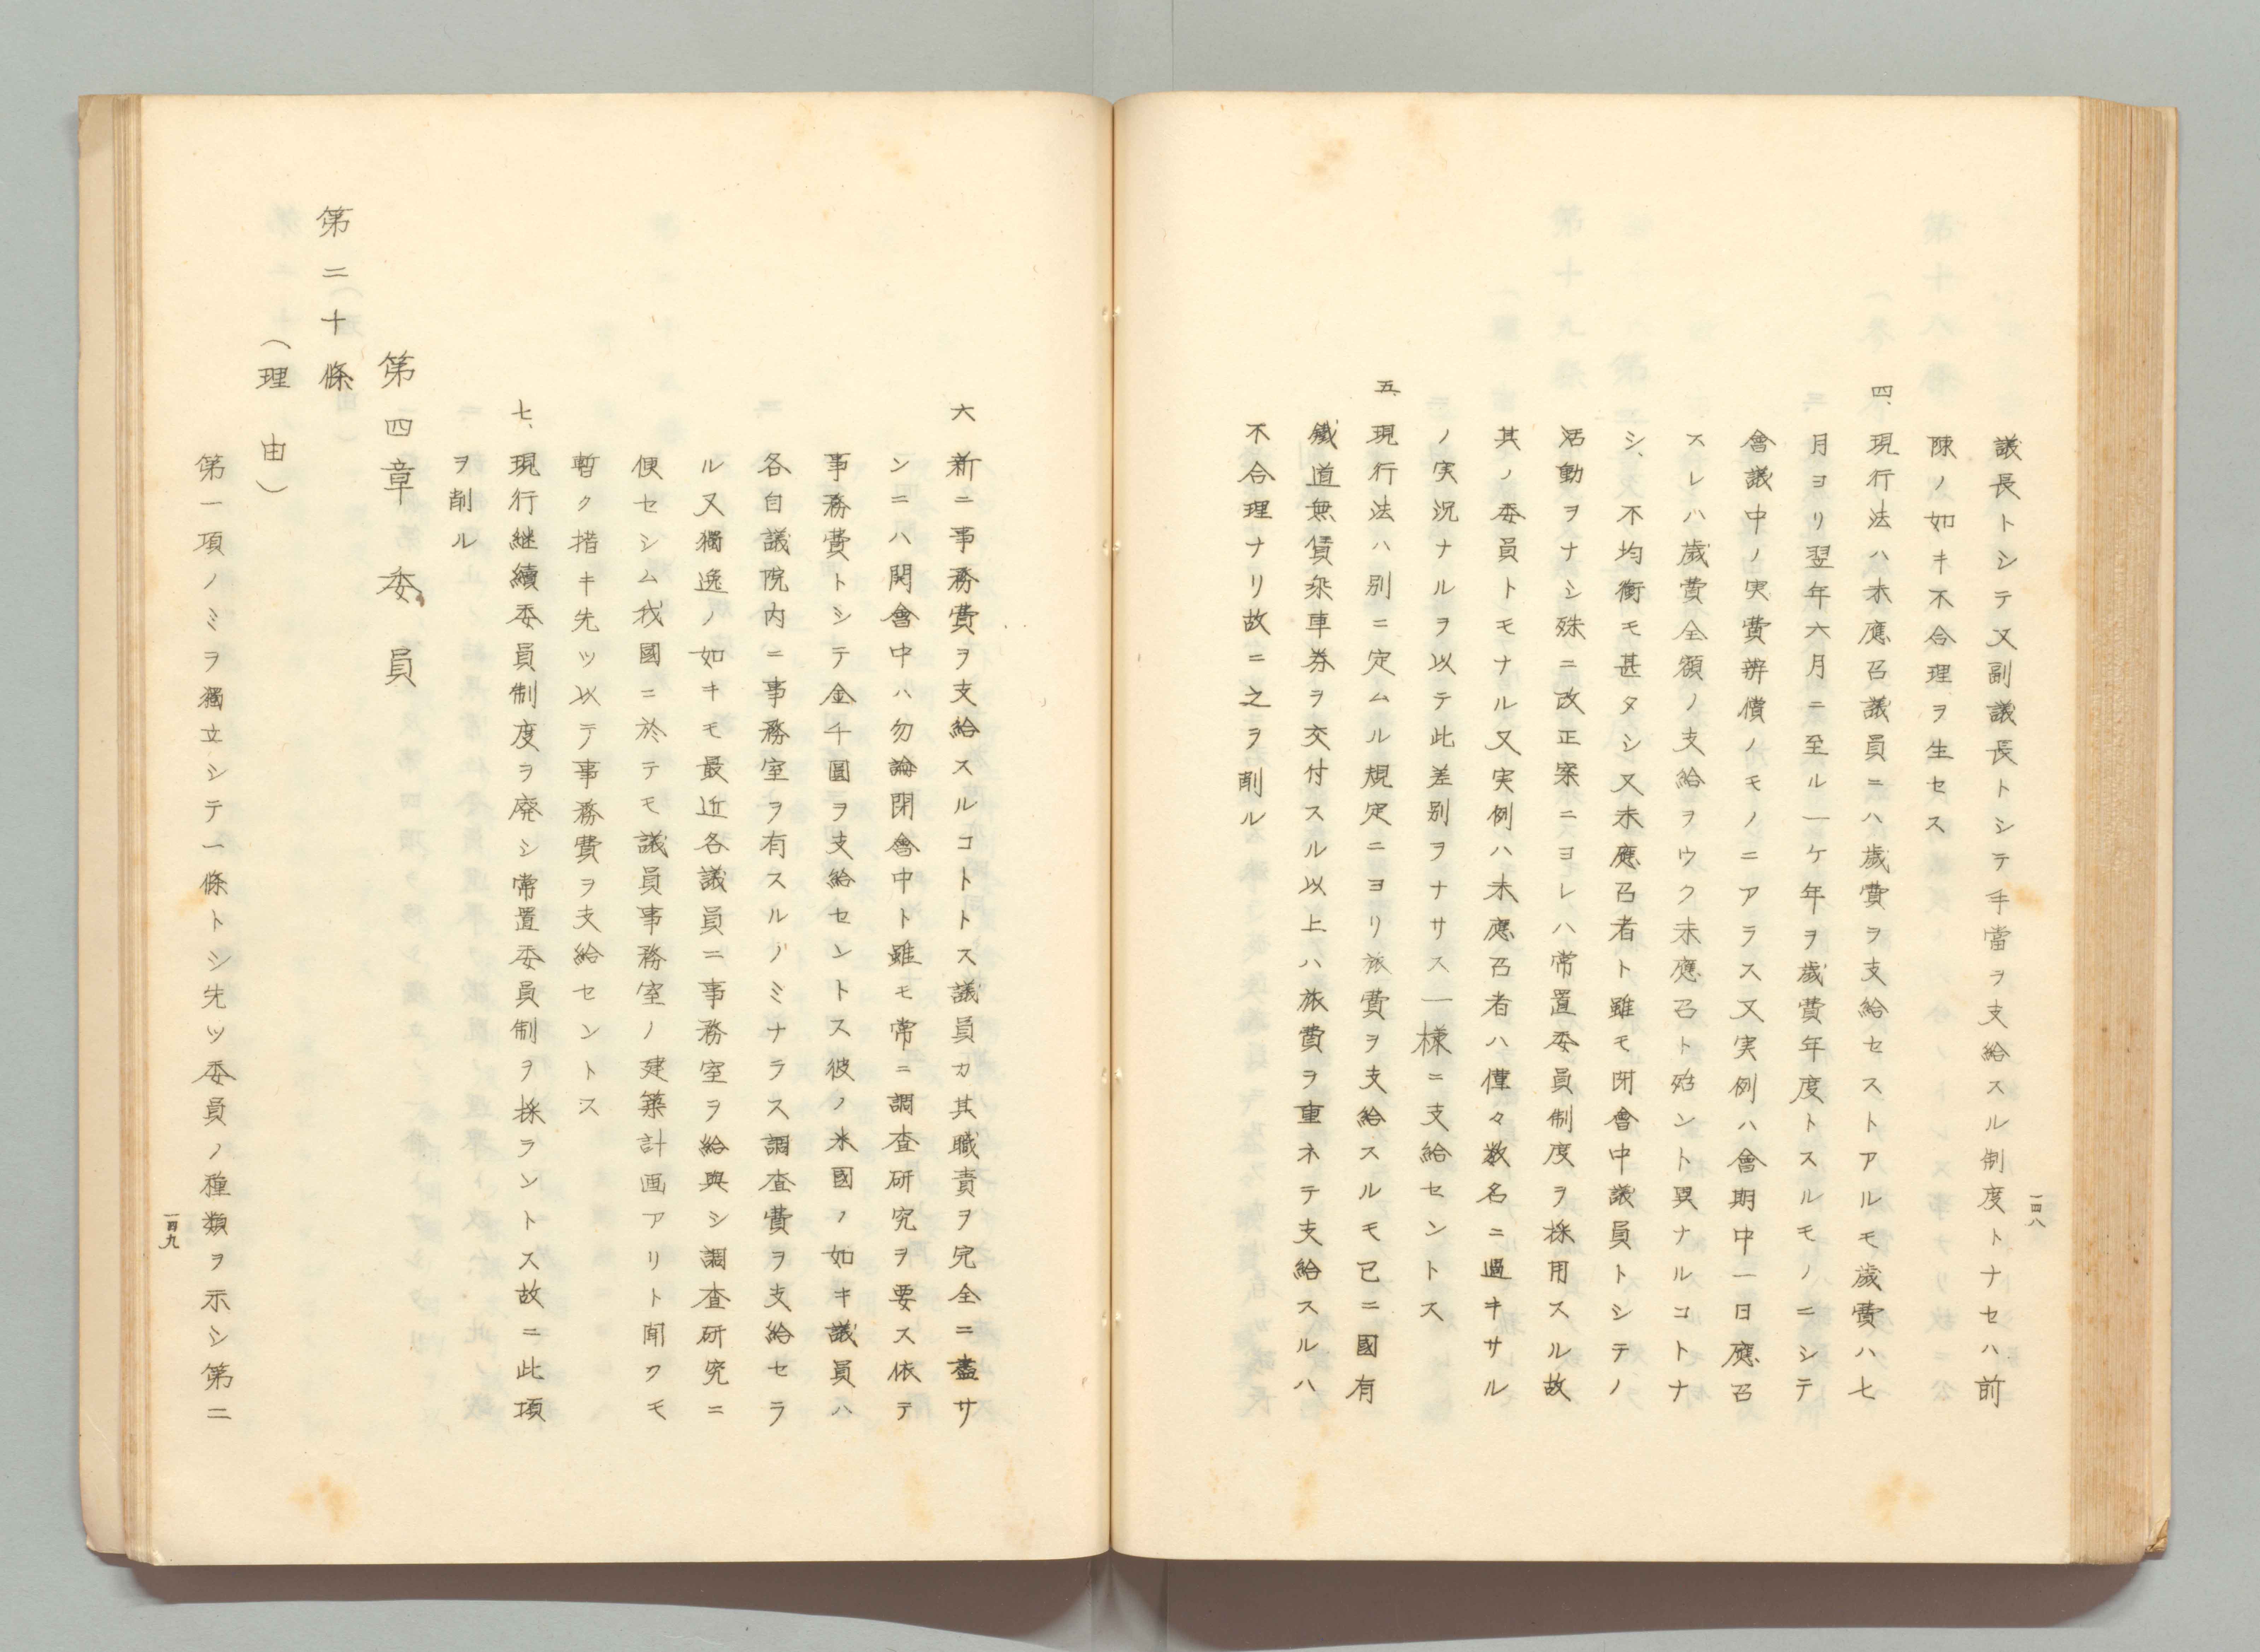 議長トシテ又副議長トシテ手當ヲ支給スル制度トナセハ前
陳ノ如キ不合理ヲ生セス
四、現行法ハ未應召議員ニハ歳費ヲ支給セストアルモ歳費ハ七
月ヨリ翌年六月ニ至ル一ケ年ヲ歳費年度トスルモノニシテ
會議中ノ実費辨償ノモノニアラス又実例ハ會期中一日應召
スレハ歳費全額ノ支給ヲウク未應召ト殆ント異ナルコトナ
シ、不均衡モ甚タシ又未應召者ト雖モ閉會中議員トシテノ
活動ヲナシ殊ニ改正案ニヨレハ常置委員制度ヲ採用スル故
其ノ委員トモナル又実例ハ未應召者ハ僅々数名ニ過キサル
ノ実況ナルヲ以テ此差別ヲナサス一様ニ支給セントス
五、現行法ハ別ニ定ムル規定ニヨリ旅費ヲ支給スルモ已ニ國有
鐵道無賃乗車券ヲ交付スル以上ハ旅費ヲ重ネテ支給スルハ
不合理ナリ故ニ之ヲ削ル
一四八
六 新ニ事務費ヲ支給スルコトトス議員カ其職責ヲ完全ニ盡サ
ンニハ開會中ハ勿論閉會中ト雖モ常ニ調査研究ヲ要ス依テ
事務費トシテ金千圓ヲ支給セントス彼ノ米國ノ如キ議員ハ
各自議院内ニ事務室ヲ有スルノミナラス調査費ヲ支給セラ
ル又獨逸ノ如キモ最近各議員ニ事務室ヲ給與シ調査研究ニ
便セシム我國ニ於テモ議員事務室ノ建築計画アリト聞クモ
暫ク措キ先ツ以テ事務費ヲ支給セントス
七、現行継續委員制度ヲ廃シ常置委員制ヲ採ラントス故ニ此項
ヲ削ル
第四章 委員
第二十條
（理由）
第一項ノミヲ獨立シテ一條トシ先ツ委員ノ種類ヲ示シ第二
一四九